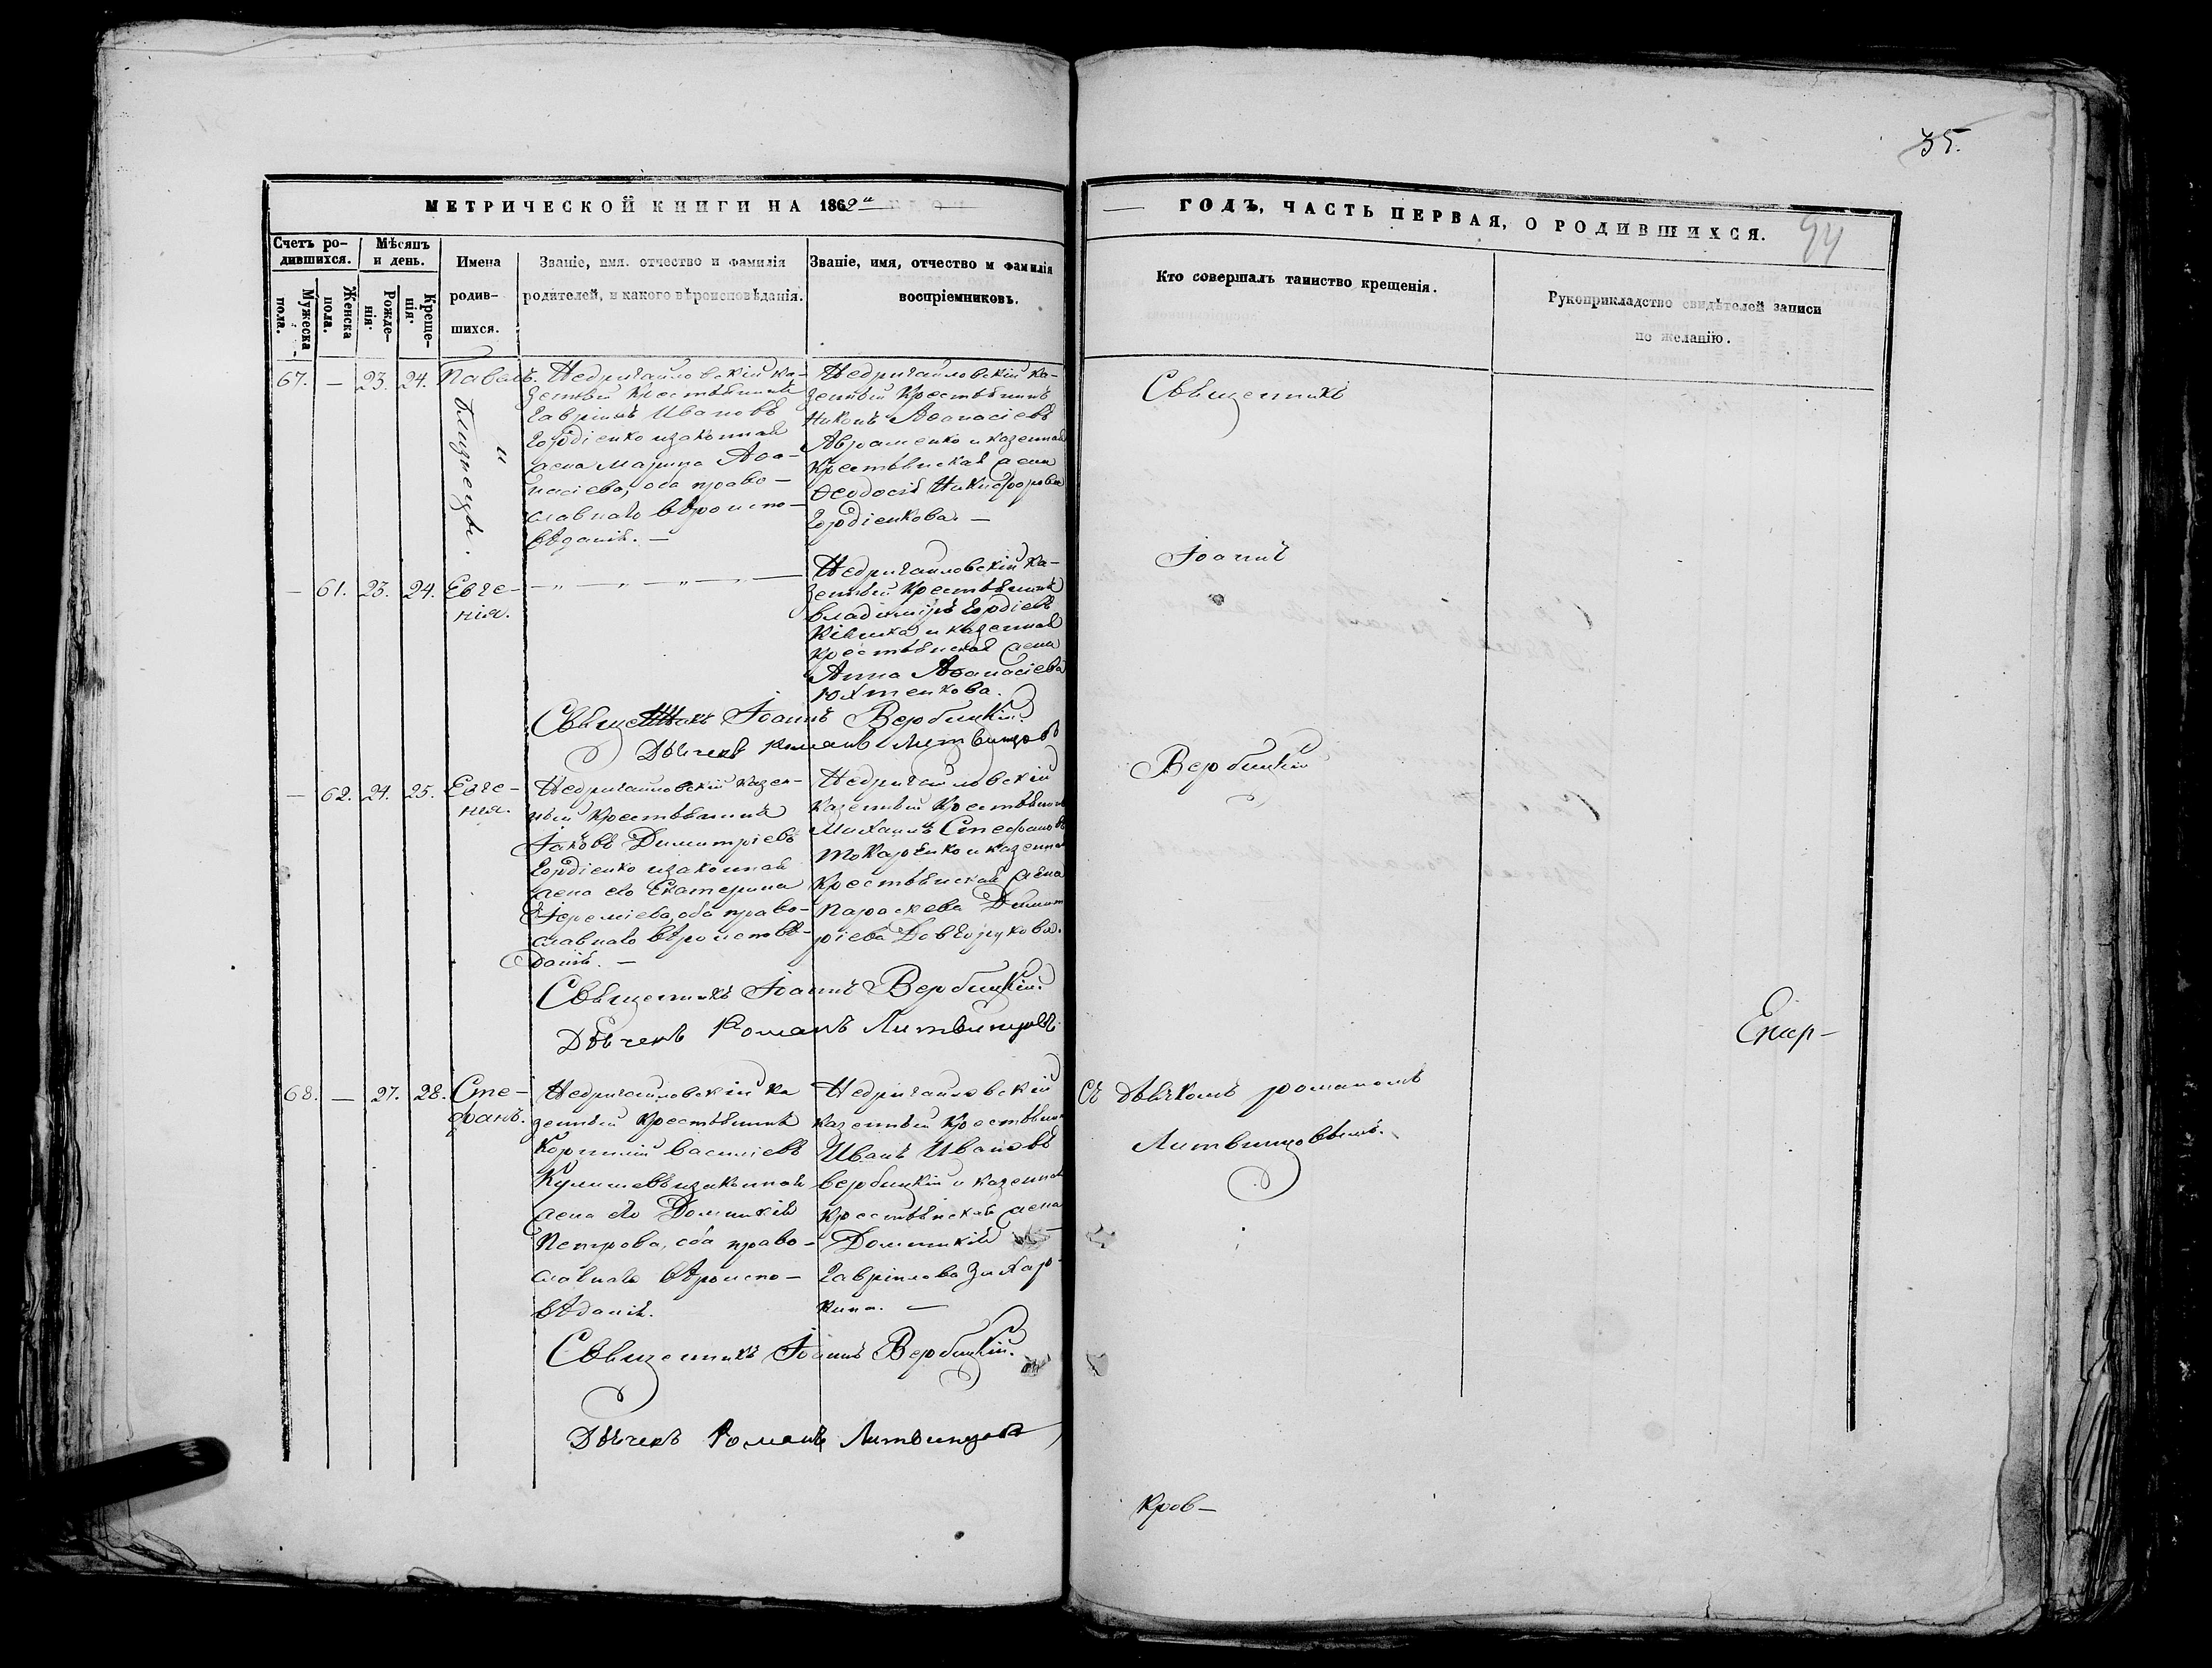 35.
94
МЕТРИЧЕСКОЙ КНИГИ НА 1862й
ГОДЪ, ЧАСТЬ ПЕРВАЯ, О РОДИВШИХСЯ.
Счетъ ро-
дившихся.
Мужеска
пола.
Женска
пола.
Мѣсяцъ
и день.
Рожде-
нія.
Креще-
нія.
Имена
родив-
шихся.
Званіе, имя, отчество и фамилія
родителей, и какого вѣроисповѣданія.
Званіе, имя, отчество и фамилія
воспріемниковъ.
Кто совершалъ таинство крещенія.
Рукоприкладство свидѣтелей записи
по желанію.
67. — 23. 24. Павелъ.
и
Близнецы.
Недригайловскій ка-
зенный Крестьянинъ
Гавріилъ Ивановъ
Гордіенко и законная
жена Марина Аѳа-
насіева, оба право-
славнаго вѣроиспо-
вѣданія. —
Недригайловскій ка-
зенный Крестьянинъ
Никонъ Аѳанасіевъ
Авраменко и казенная
Крестьянская жена
Ѳеодосія Никифорова
Гордіенкова. —
— 61. 23. 24. Евге-
нія.
— „ — „ — „ — „ —
Недригайловскій ка-
зенный Крестьянинъ
Владиміръ Гордіевъ
и казенная
Крестьянская жена
Анна Аѳанасіева
Юхменкова.
Священникъ Іоаннъ Вербицкій.
Дьячекъ Романъ Литвинцовъ
— 62. 24. 25. Евге-
нія.
Недригайловскій казен-
ный Крестьянинъ
Іаковъ Димитріевъ
Гордіенко и законная
жена его Екатерина
Іереміева, оба право-
славнаго вѣроисповѣ-
данія. —
Недригайловскій
казенный Крестьянинъ
Михаилъ Стефановъ
Токаренко и казенная
Крестьянская жена
Параскева Димит
ріева Довгорукова.
Священникъ Іоаннъ Вербицкій.
Дьячекъ Романъ Литвинцовъ.
68. — 27. 28. Сте-
фанъ.
Недригайловскій ка
зенный Крестьянинъ
Корнилій Василіевъ
Кулишевъ и законная
жена его Домникія
Петрова, оба право-
славнаго вѣроиспо-
вѣданія.
Недригайловскій
казенный Крестьянинъ
Иванъ Ивановъ
Вербицкій и казенная
Крестьянская жена
Домникія
Гавріилова
кина. —
Священникъ Іоаннъ Вербицкій.
Дьячекъ Романъ Литвинцовъ
Священникъ
Іоаннъ
Вербицкій
съ дьячкомъ Романомъ
Литвинцовымъ.